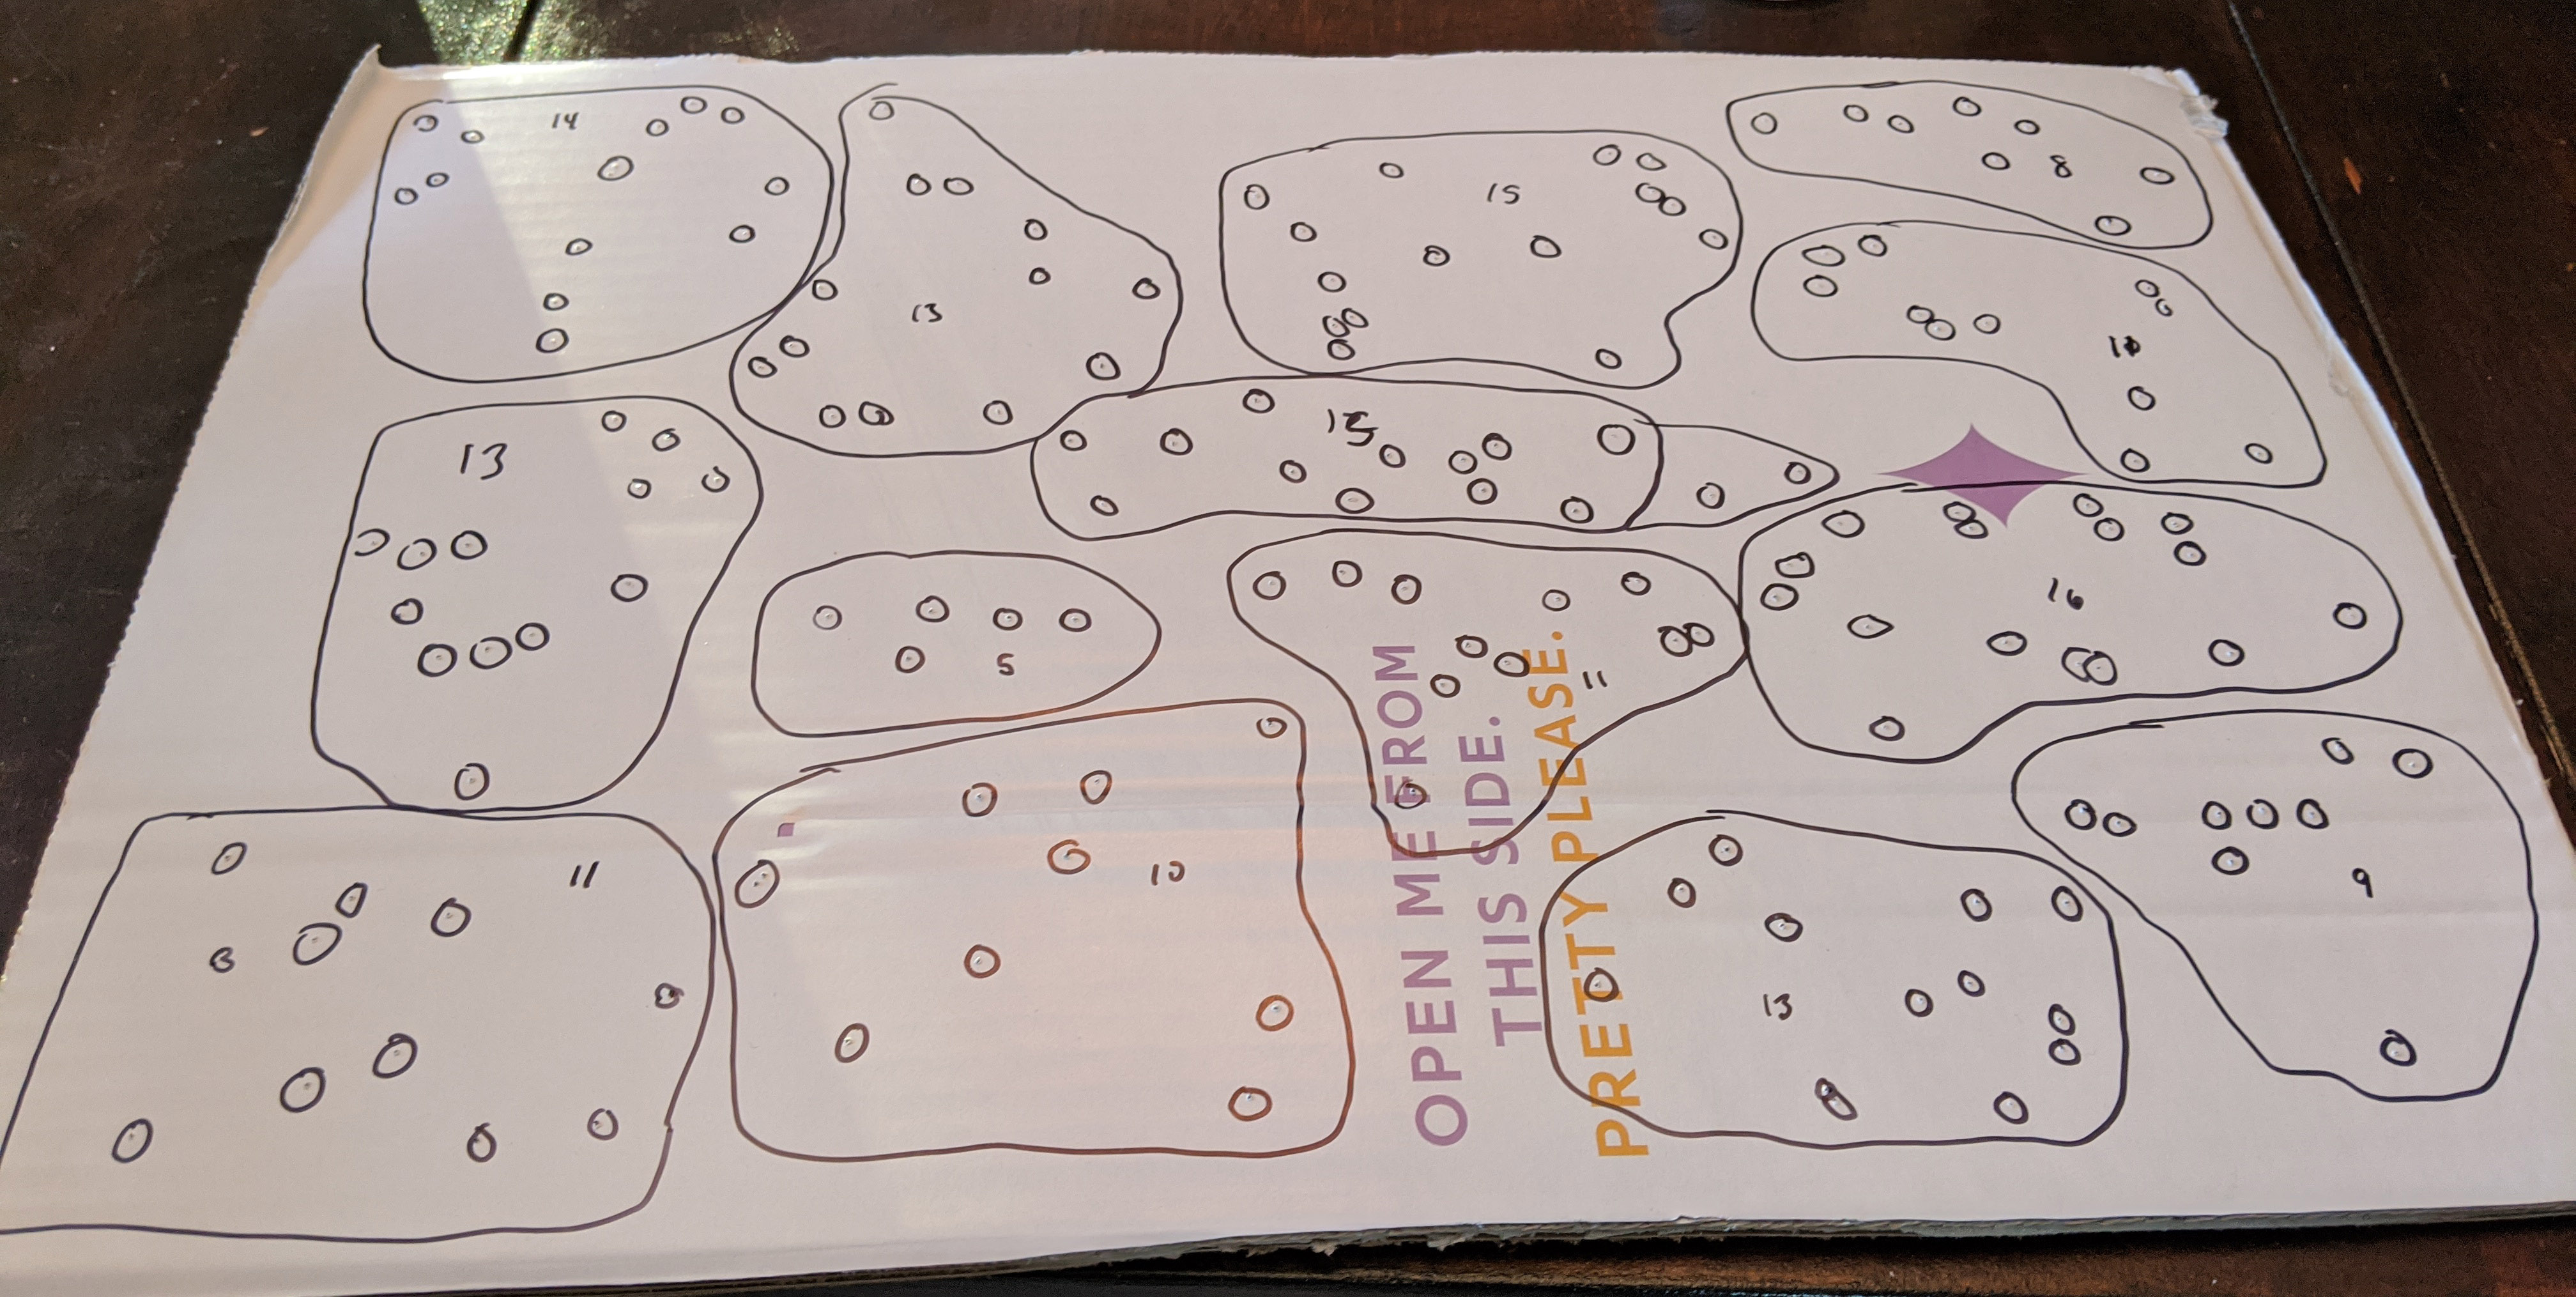 14
13
15
8
13
5
11
16
11
10
13
9
OPEN ME FROM
THIS SIDE.
PRETTY PLEASE.